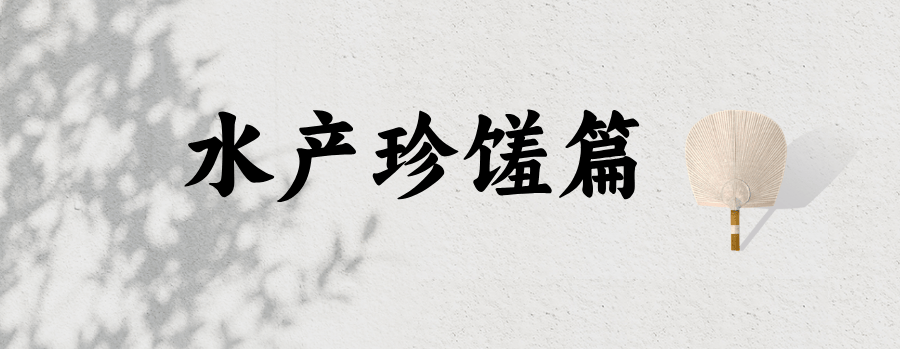 水产珍馐篇